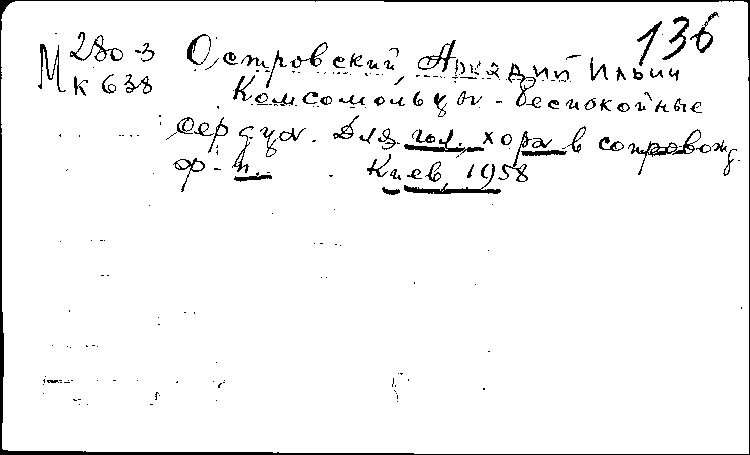 136
М 280-3
К 638
Островский, Аркадий Ильич
Комсомольцы - беспокойные
сердца. Для гол. хора в сопровожд.
ф-п. Киев, 1958